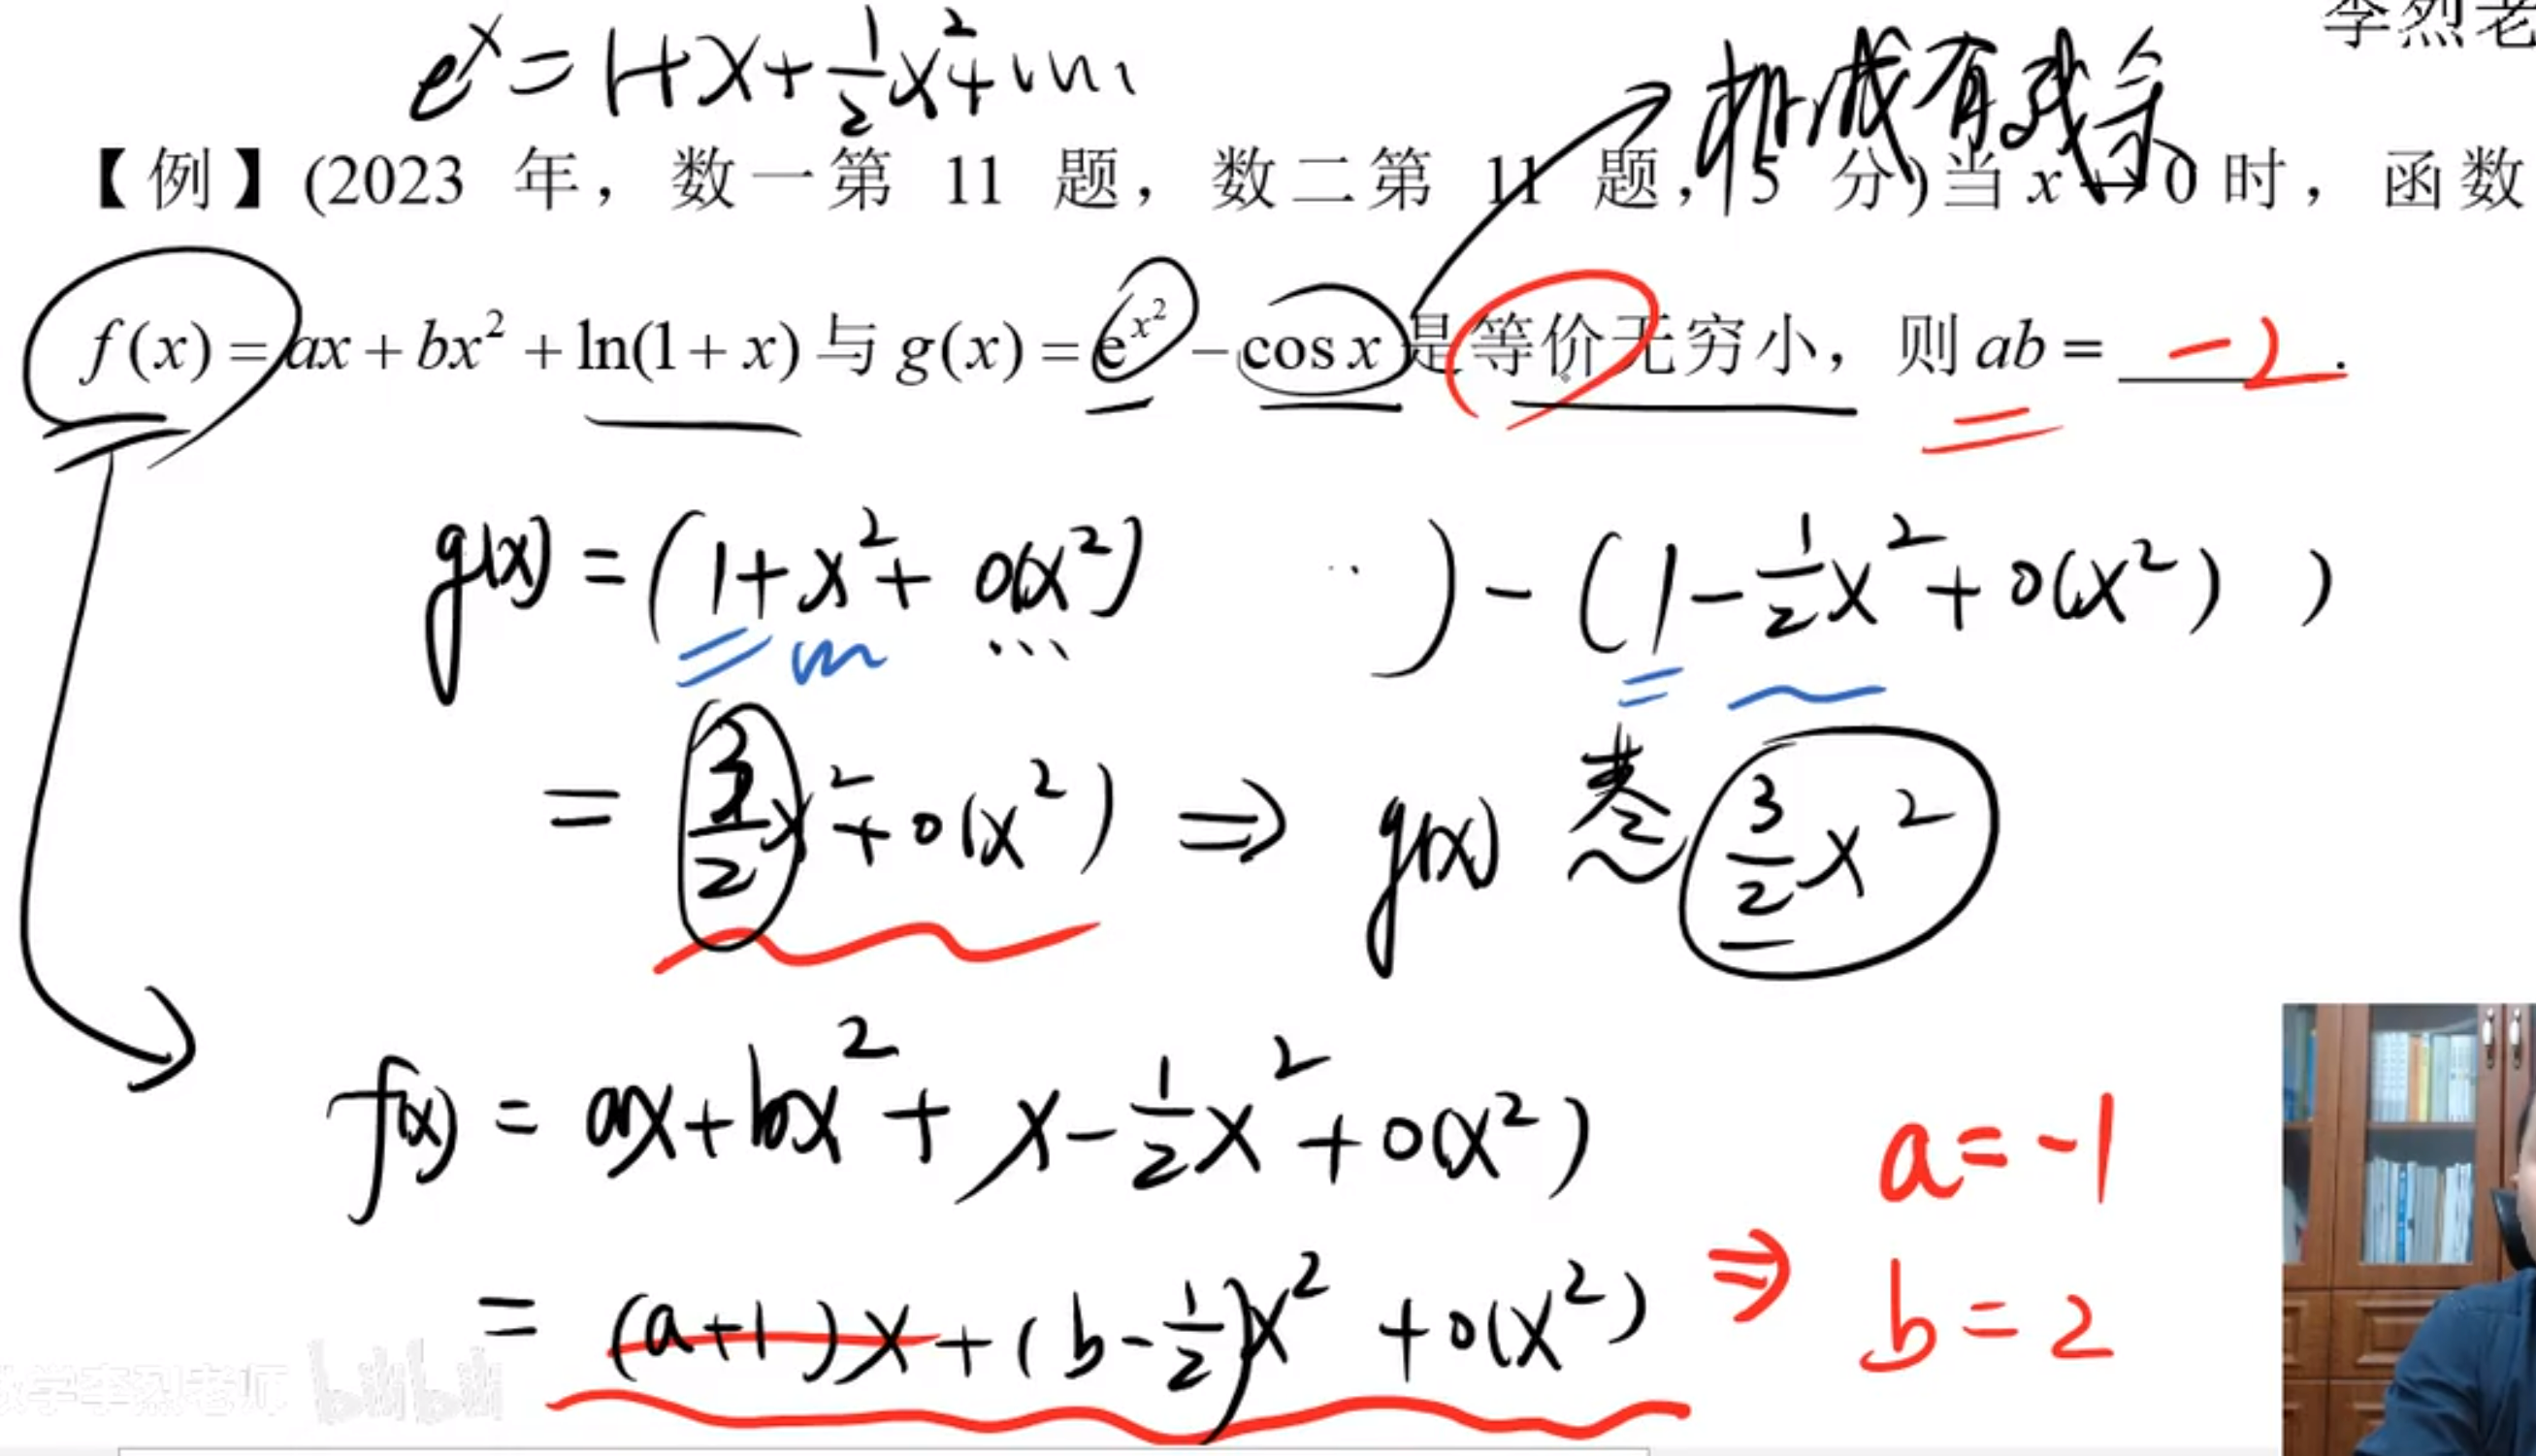 李烈老
eˣ = 1+x+½x²+...
拆成有残余
【例】(2023 年，数一第 11 题，数二第 11 题，5 分)当 x→0 时，函数
f(x) = ax + bx² + ln(1+x) 与 g(x) = e^{x²} − cos x 是等价无穷小，则 ab = -2 .
g(x) = (1+x²+o(x²) ··) - (1-½x²+o(x²))
= 3/2 x²+o(x²) ⇒ g(x) ~ 3/2 x²
f(x) = ax+bx²+x-½x²+o(x²)
= (a+1)x+(b-½)x²+o(x²) ⇒ a=-1
b=2
数学李烈老师 bilibili